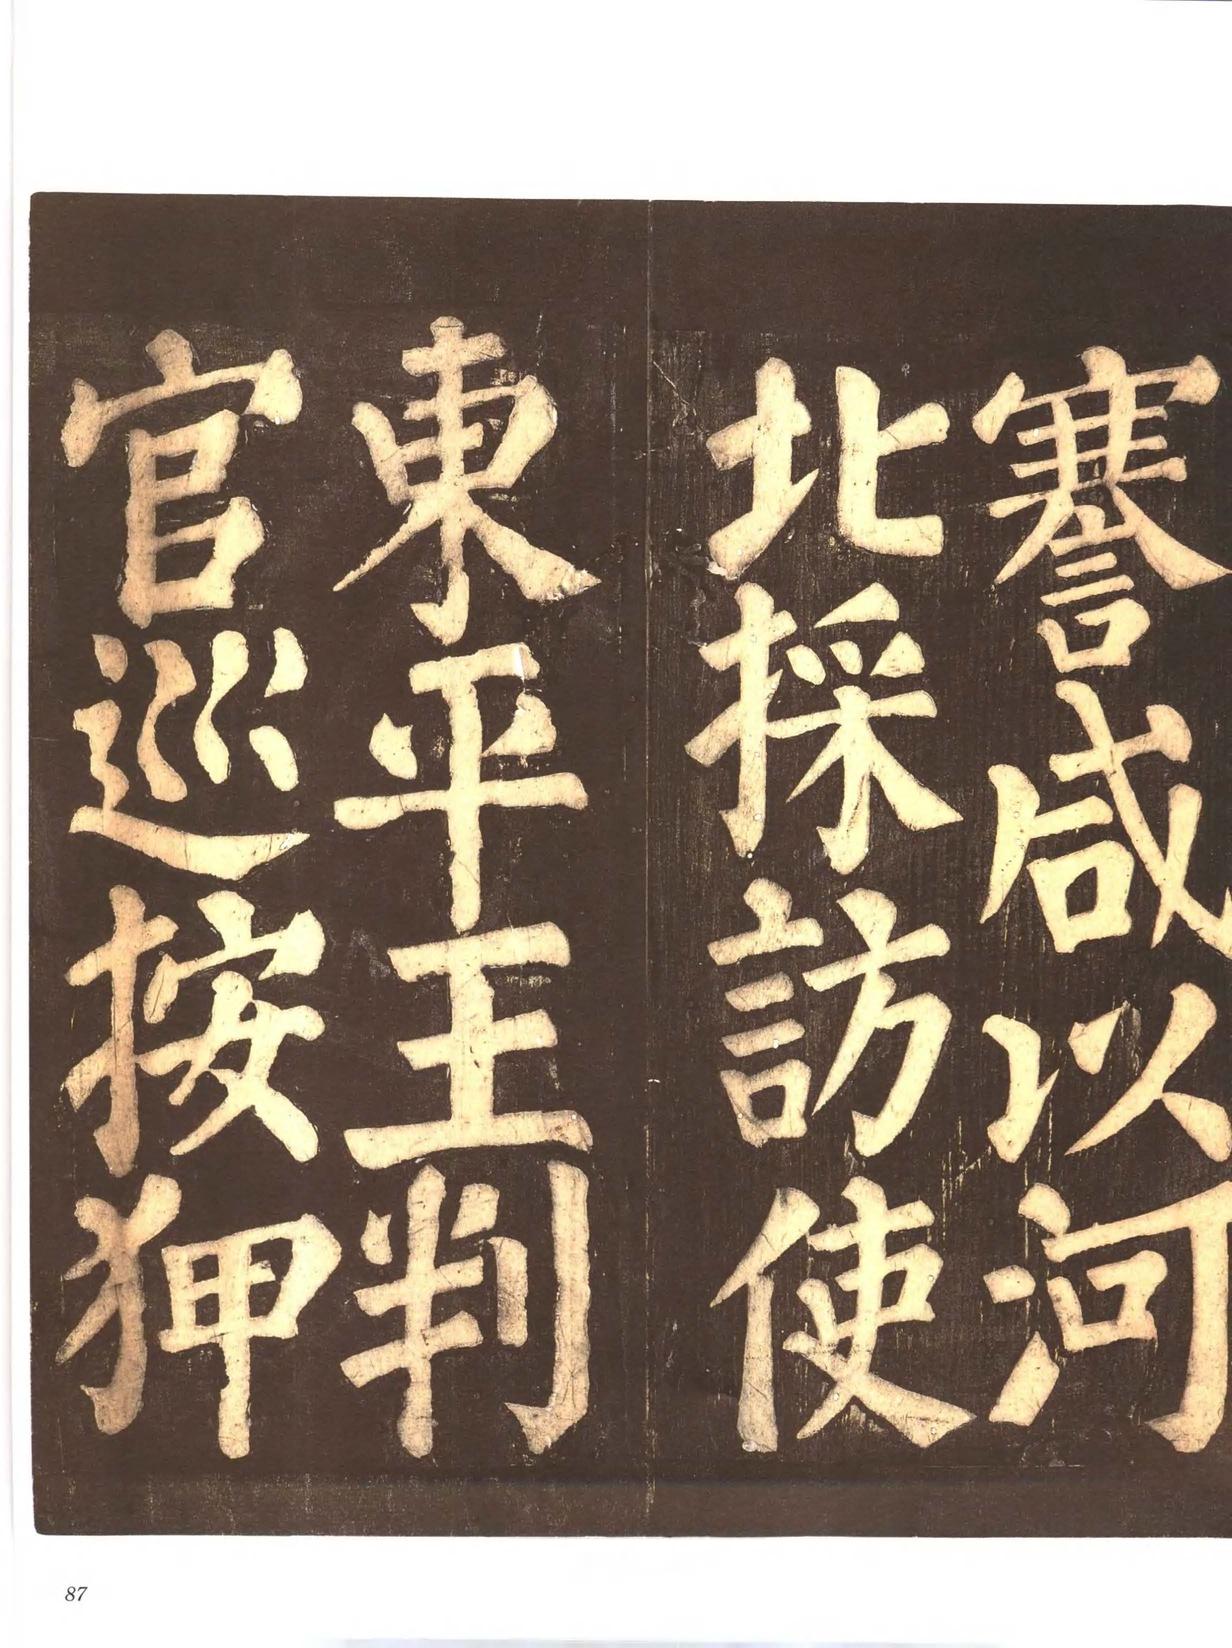 謇咸以河
北採訪使
東平王判
官巡按狎
87